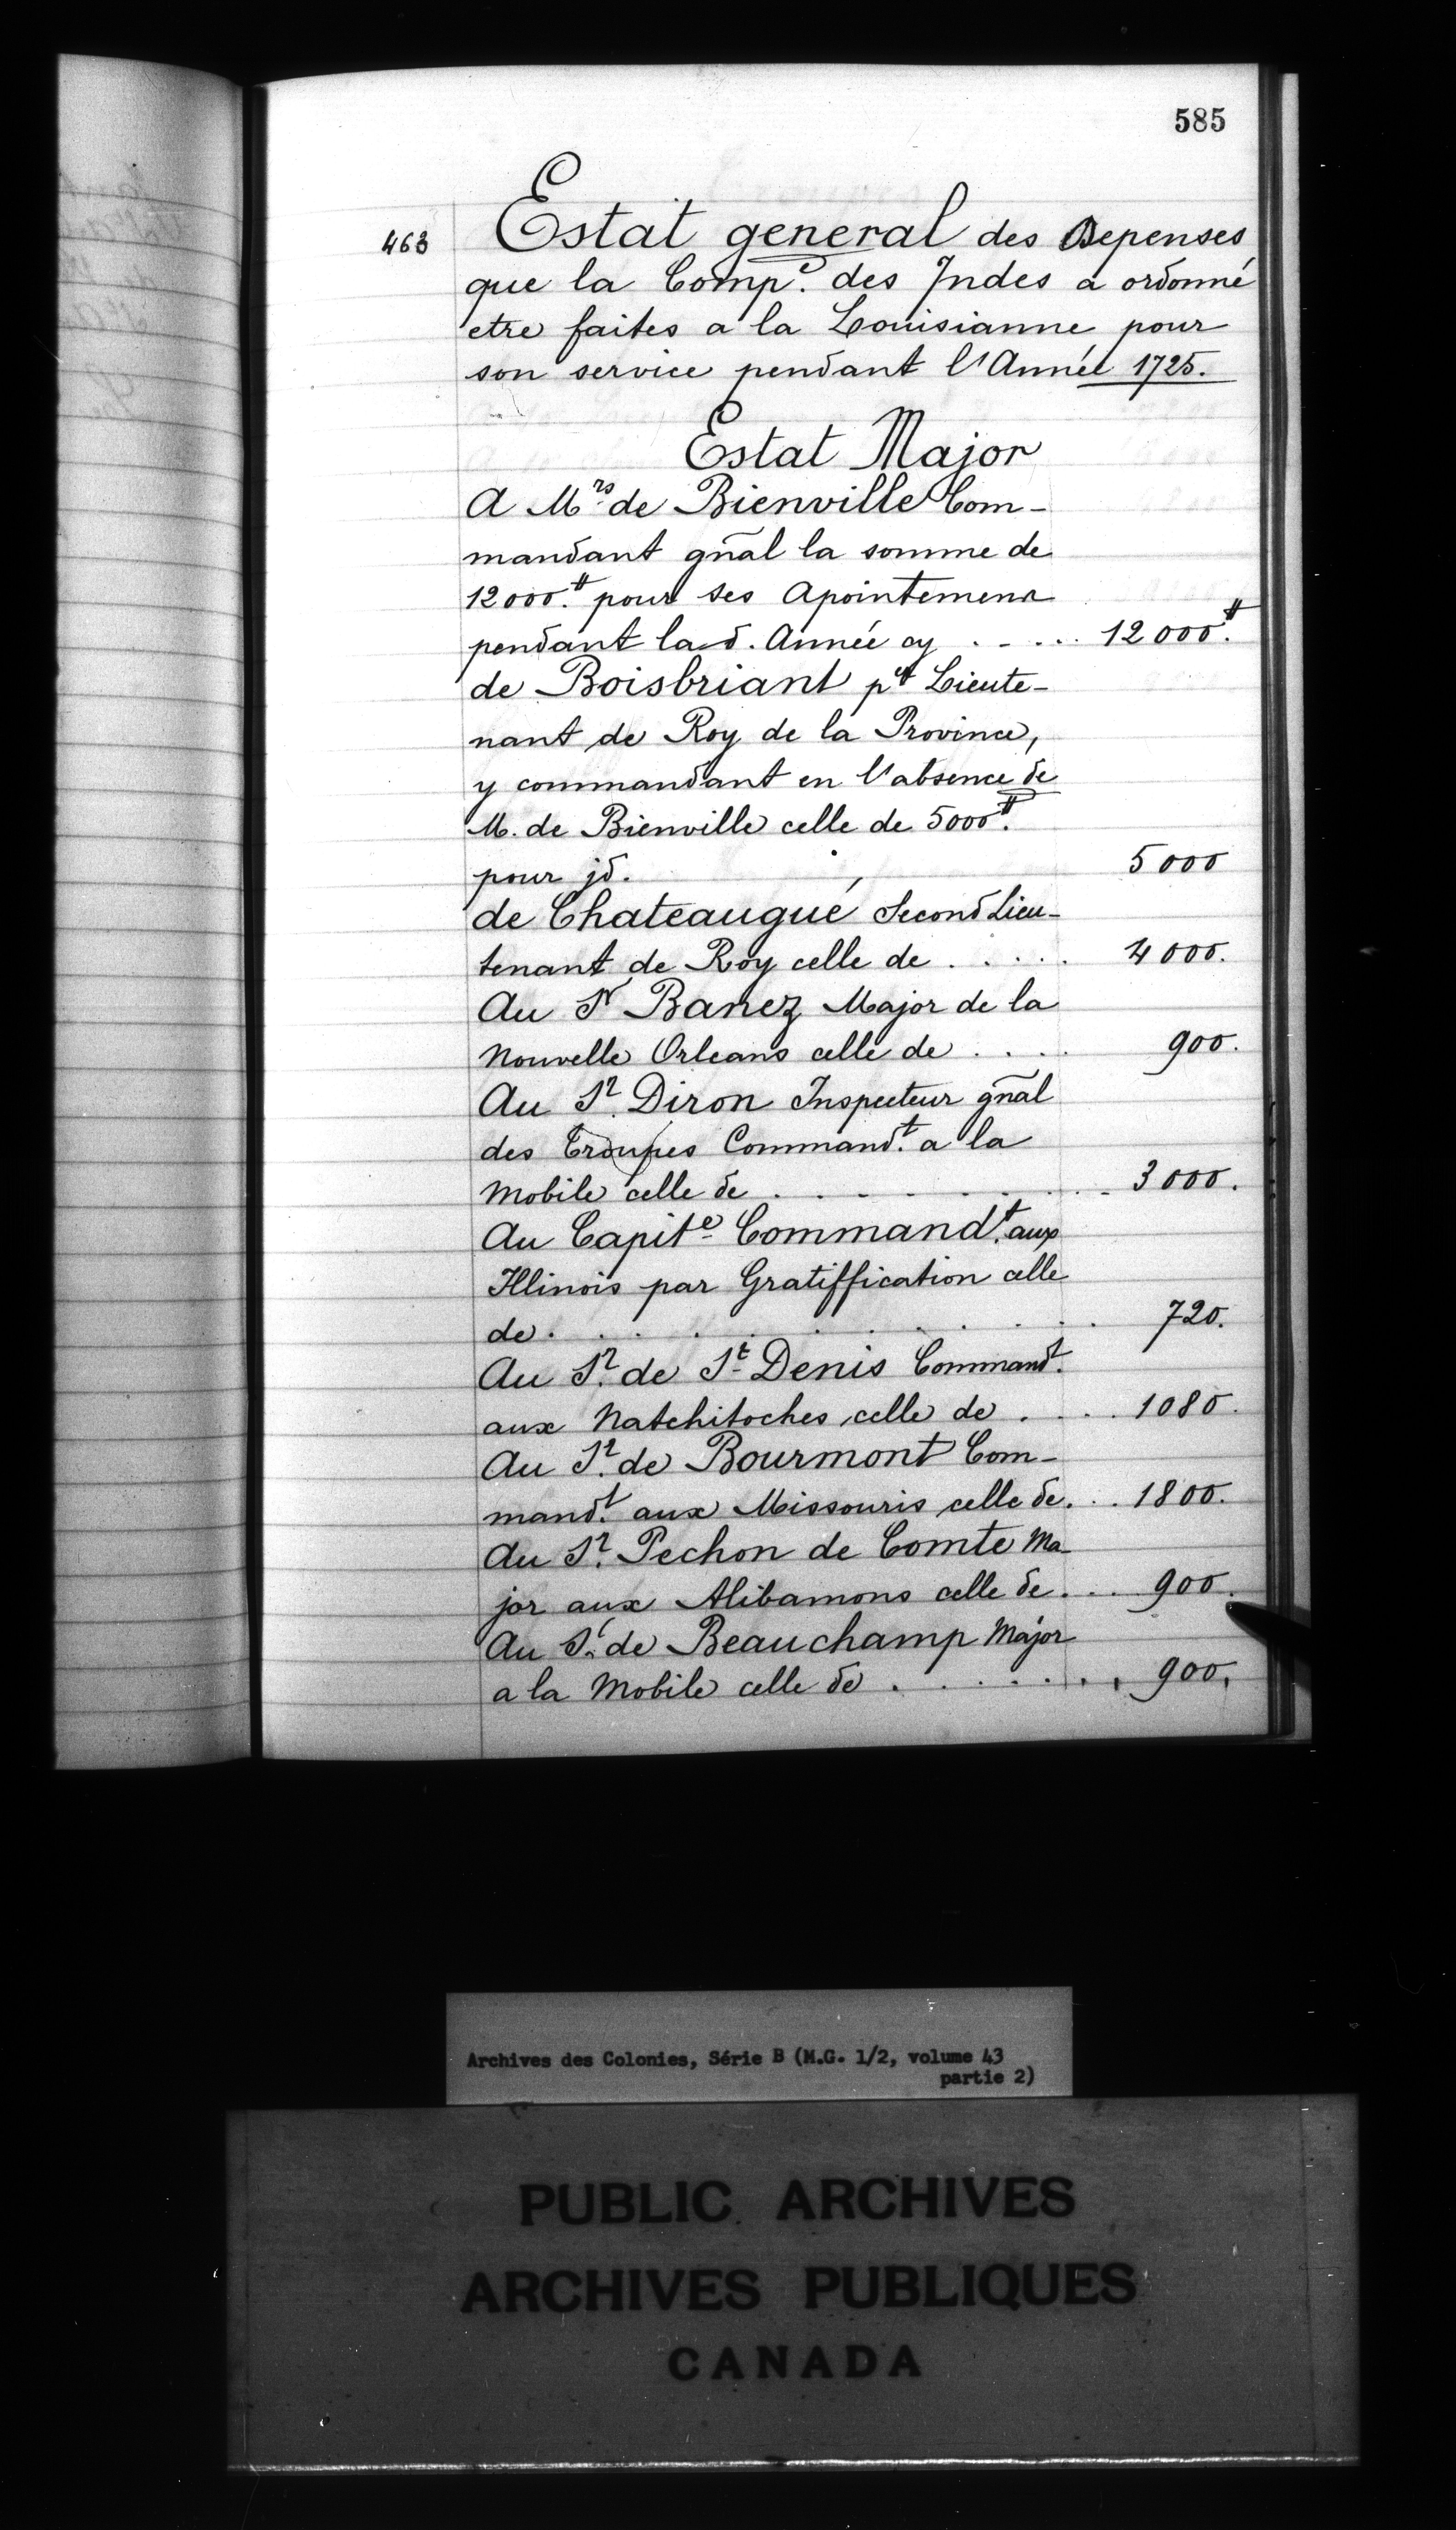 585
463
Estat general des Depenses
que la Comp.e des Indes a ordonné
etre faites a la Louisianne pour
son service pendant l'Année 1725.
Estat Major
A Mrs de Bienville Com-
mandant gñal la somme de
12000.# pour ses Apointemens
pendant lad. Année cy . - . . . 12000.#
de Boisbriant p.er Lieute-
nant de Roy de la Province,
y commandant en l'absence de
M. de Bienville celle de 5000.#
pour jd. 5000
de Chateaugué Second Lieu-
tenant de Roy celle de . . . . . 4000.
Au Sr Banez Major de la
Nouvelle Orleans celle de . . . . 900.
Au Sr. Diron Inspecteur gñal
des Troupes Command.t a la
Mobile celle de . . . . . . . . 3000.
Au Capite Command.t aux
Illinois par Gratiffication celle
de . . . . . . . . . . 720.
Au Sr. de St Denis Command.t
aux Natchitoches celle de . . . . 1080.
Au Sr. de Bourmont Com-
mand.t aux Missouris celle de . . . 1800.
Au Sr. Pechon de Comte Ma-
jor aux Alibamons celle de . . . 900.
Au Sr. de Beauchamp Major
a la Mobile celle de . . . . . . . 900.
Archives des Colonies, Série B (M.G. 1/2, volume 43
partie 2)
PUBLIC ARCHIVES
ARCHIVES PUBLIQUES
CANADA